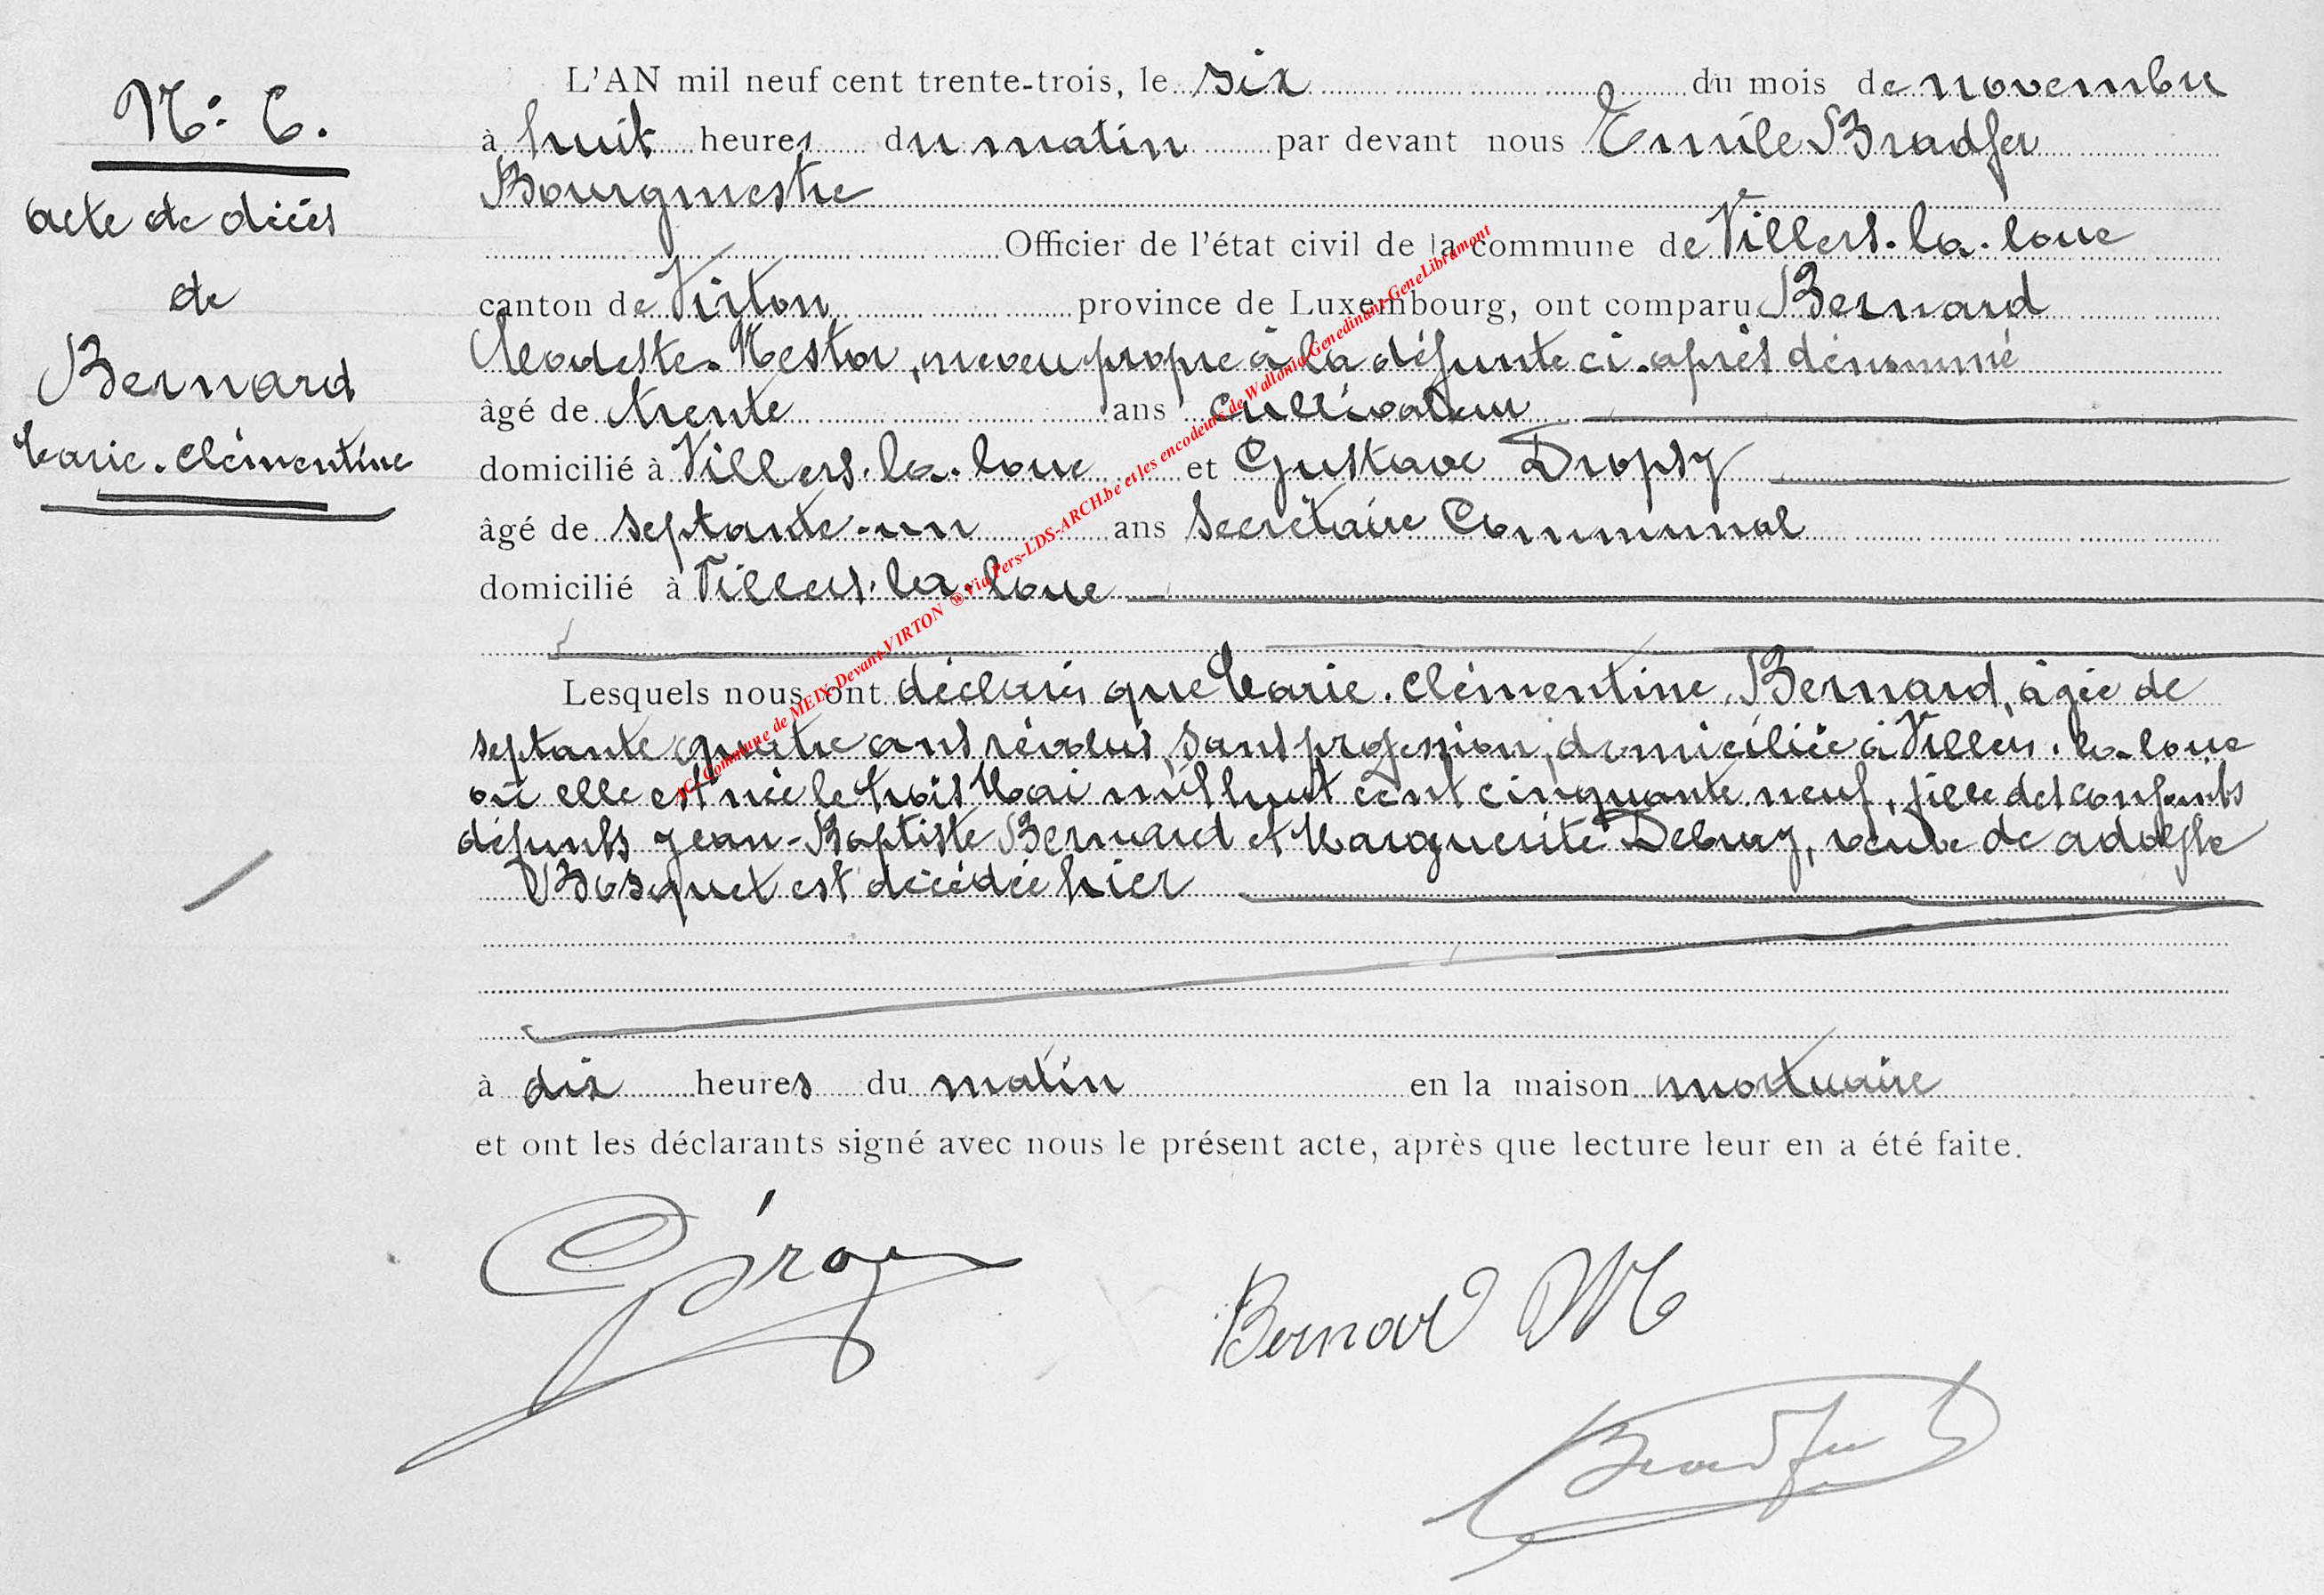 N: 6.
acte de décès
de
Bernard
Marie. Clémentine
L'AN mil neuf cent trente-trois, le six du mois de novembre
à huit heures du matin par devant nous Emile Bradfer
Bourgmestre
Officier de l'état civil de la commune de Villers. la. loue
canton de Virton province de Luxembourg, ont comparu Bernard
Modeste. Nestor, neveu propre à la défunte ci. après dénommé
âgé de trente ans cultivateur
domicilié à Villers. la. loue et Gustave Dropsy
âgé de septante-un ans Secrétaire Communal
domicilié à Villers. la. loue
Lesquels nous ont déclaré que Marie. Clémentine. Bernard, âgée de
septante quatre ans révolus, sans profession, domiciliée à Villers. la-loue
où elle est née le trois Mai mil huit cent cinquante neuf, fille des conjoints
défunts Jean-Baptiste Bernard et Marguerite Debray, veuve de adolphe
Bosquet est décédée hier
à dix heures du matin en la maison mortuaire
et ont les déclarants signé avec nous le présent acte, après que lecture leur en a été faite.
Bernard M
Bradfer
Commune de MEIX-Devant-VIRTON ® Via Pers-LDS-ARCH.be et les encodeurs de Wallonia-Genedinant-GeneLibramont